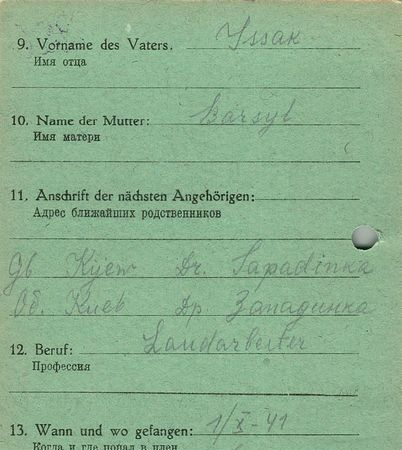 9. Vorname des Vaters. Issak
Имя отца
10. Name der Mutter: Barsyl
Имя матери
11. Anschrift der nächsten Angehörigen:
Адрес ближайших родственников
Gb Kijew Dr. Sapadinka
Об. Киев Др Западинка
12. Beruf: Landarbeiter
Профессия
13. Wann und wo gefangen: 1/X-41
Когда и где попал в плен